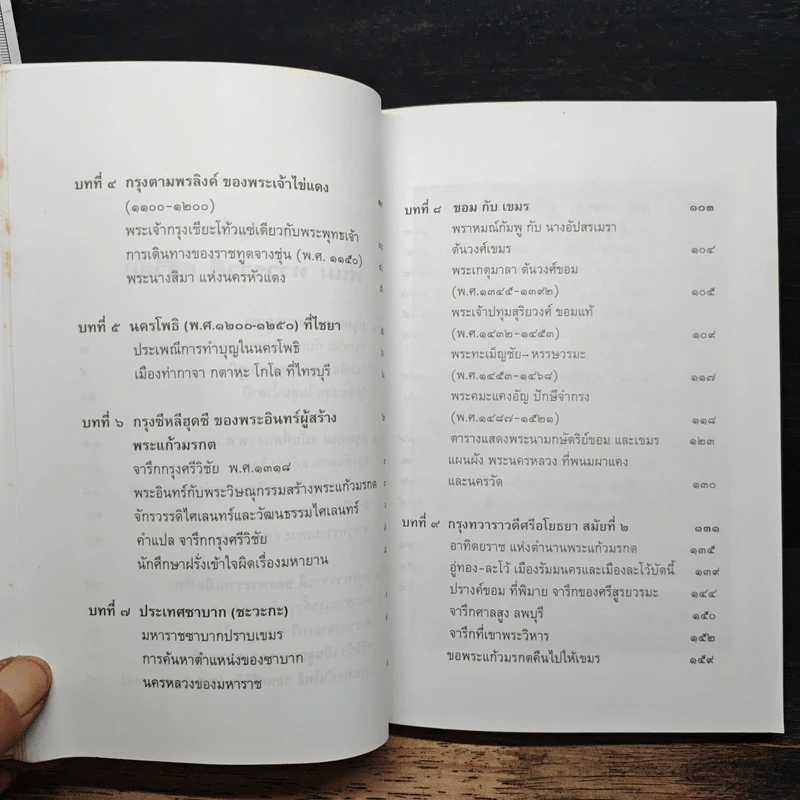 บทที่ ๔ กรุงตามพรลิงค์ ของพระเจ้าไข่แดง
(๑๑๐๐-๑๒๐๐)
พระเจ้ากรุงเชียะโท้วแซ่เดียวกับพระพุทธเจ้า
การเดินทางของราชทูตจางชุ่น (พ.ศ. ๑๑๕๐)
พระนางสิมา แห่งนครหัวแดง
บทที่ ๕ นครโพธิ (พ.ศ.๑๒๐๐-๑๒๕๐) ที่ไชยา
ประเพณีการทำบุญในนครโพธิ
เมืองทำกาจา กตาหะ โกโล ที่ไทรบุรี
บทที่ ๖ กรุงซีหลีฮุดซี ของพระอินทร์ผู้สร้าง
พระแก้วมรกต
จารึกกรุงศรีวิชัย พ.ศ.๑๓๑๘
พระอินทร์กับพระวิษณุกรรมสร้างพระแก้วมรกต
จักรวรรดิไศเลนทร์และวัฒนธรรมไศเลนทร์
คำแปล จารึกกรุงศรีวิชัย
นักศึกษาฝรั่งเข้าใจผิดเรื่องมหายาน
บทที่ ๗ ประเทศซาบาก (ชะวะกะ)
มหาราชซาบากปราบเขมร
การค้นหาตำแหน่งของซาบาก
นครหลวงของมหาราช
บทที่ ๘ ขอม กับ เขมร ๑๐๓
พราหมณ์กัมพู กับ นางอัปสรเมรา
ต้นวงศ์เขมร ๑๐๔
พระเกตุมาลา ต้นวงศ์ขอม
(พ.ศ.๑๓๔๕-๑๓๙๒) ๑๐๕
พระเจ้าปทุมสุริยวงศ์ ขอมแท้
(พ.ศ.๑๔๓๒-๑๔๕๓) ๑๐๙
พระทะเม็ญชัย-หรรษวรมะ
(พ.ศ.๑๔๕๓-๑๔๖๘) ๑๑๗
พระคมะแคงอัญ ปักษีจำกรง
(พ.ศ.๑๔๘๗-๑๕๒๑) ๑๑๘
ตารางแสดงพระนามกษัตริย์ขอม และเขมร ๑๒๓
แผนผัง พระนครหลวง ที่พนมผาแคง
และนครวัด ๑๓๐
บทที่ ๙ กรุงทวาราวดีศรีอโยธยา สมัยที่ ๒ ๑๓๑
อาทิตยราช แห่งตำนานพระแก้วมรกต ๑๓๕
อู่ทอง-ละโว้ เมืองรัมมนครและเมืองละโว้บัดนี้ ๑๓๙
ปรางค์ขอม ที่พิมาย จารึกของศรีสูรยวรมะ ๑๔๔
จารึกศาลสูง ลพบุรี ๑๕๐
จารึกที่เขาพระวิหาร ๑๕๒
ขอพระแก้วมรกตคืนไปให้เขมร ๑๕๙